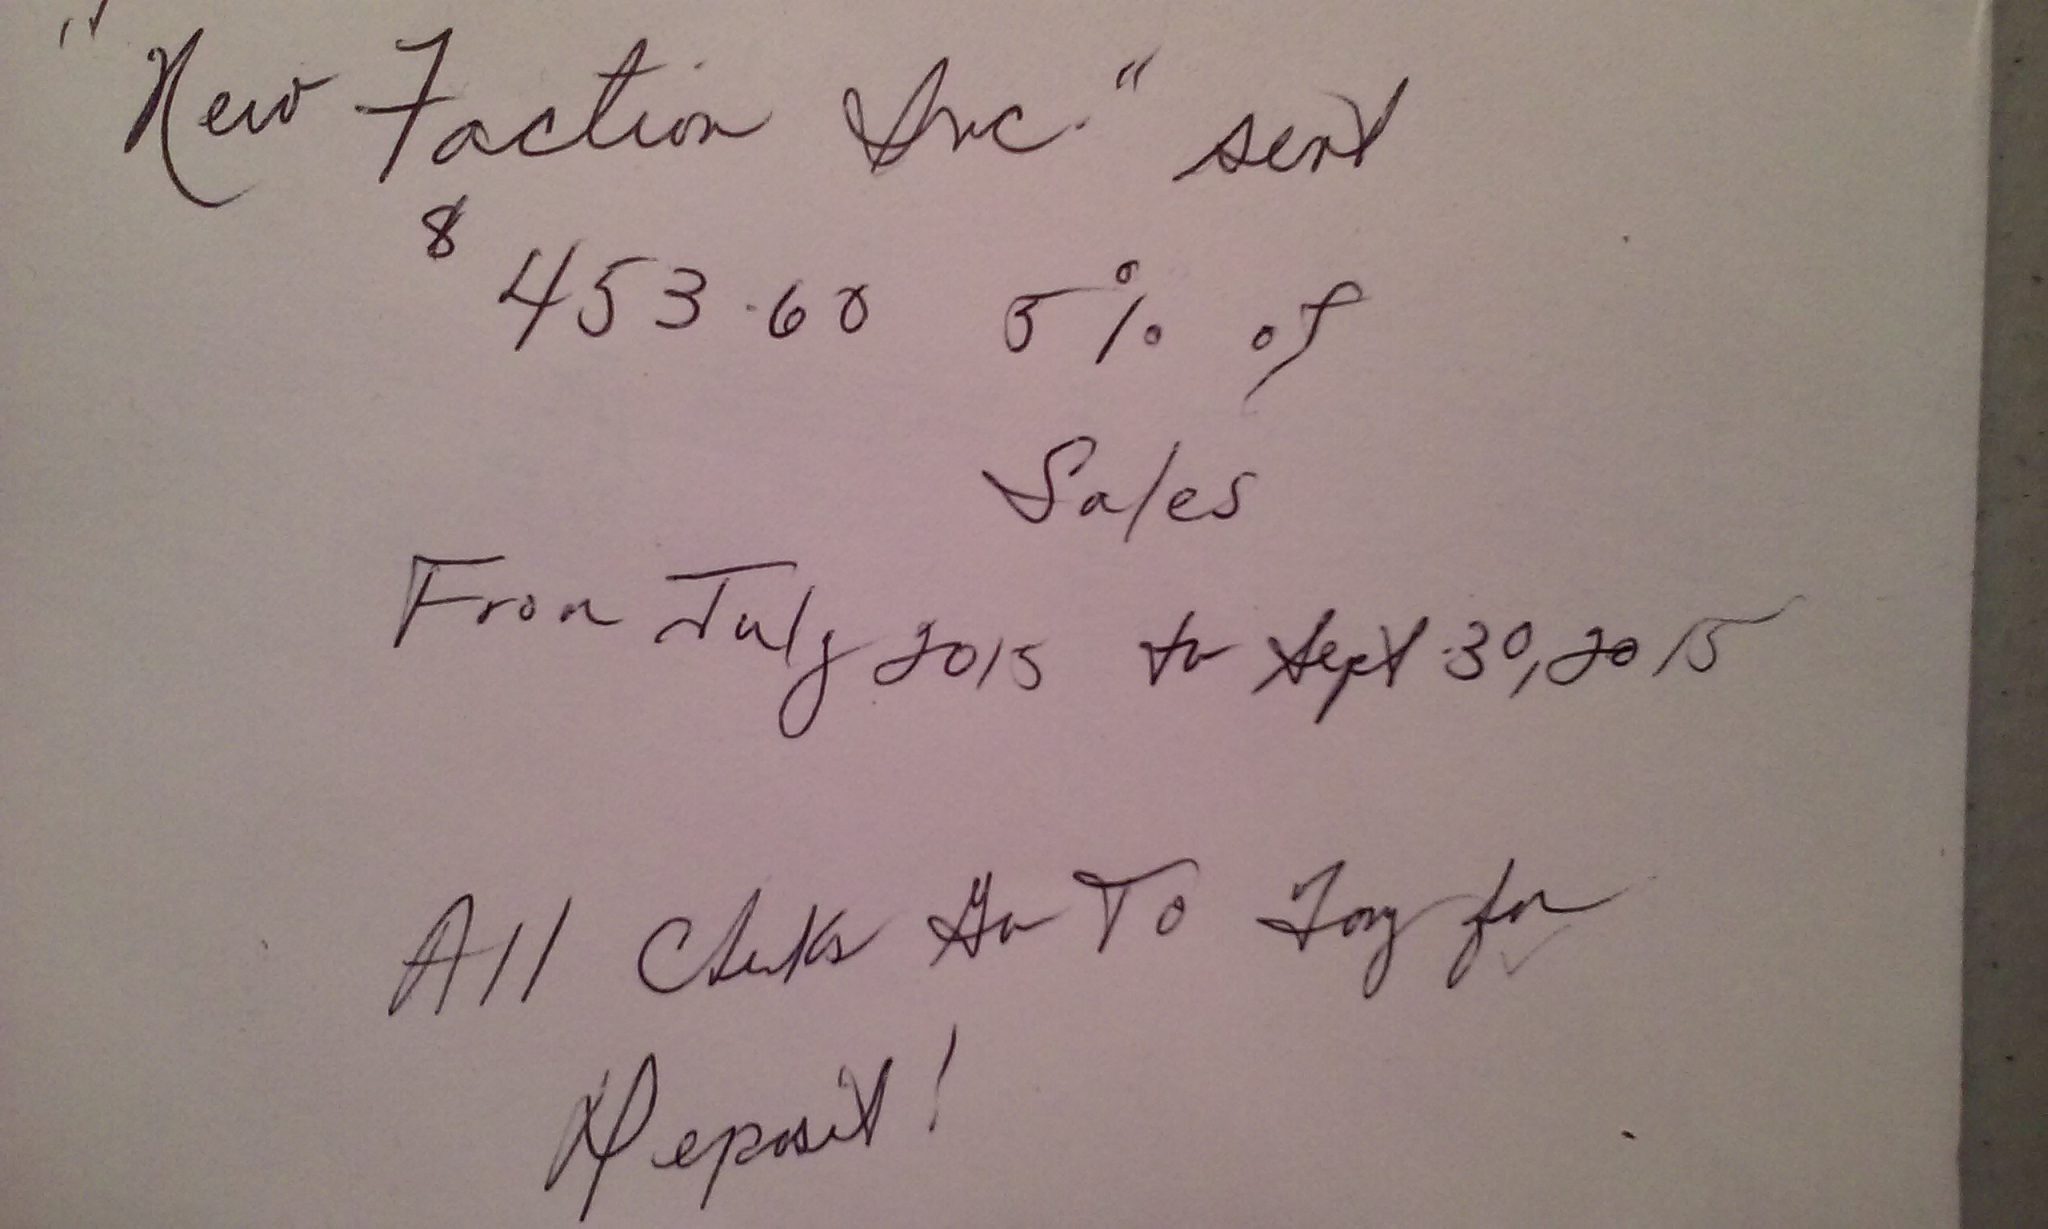 "New Faction Inc." sent
$ 453.60 5% of
Sales
From July 2015 to Sept 30, 2015
All Checks Go To Tony for
Deposit!